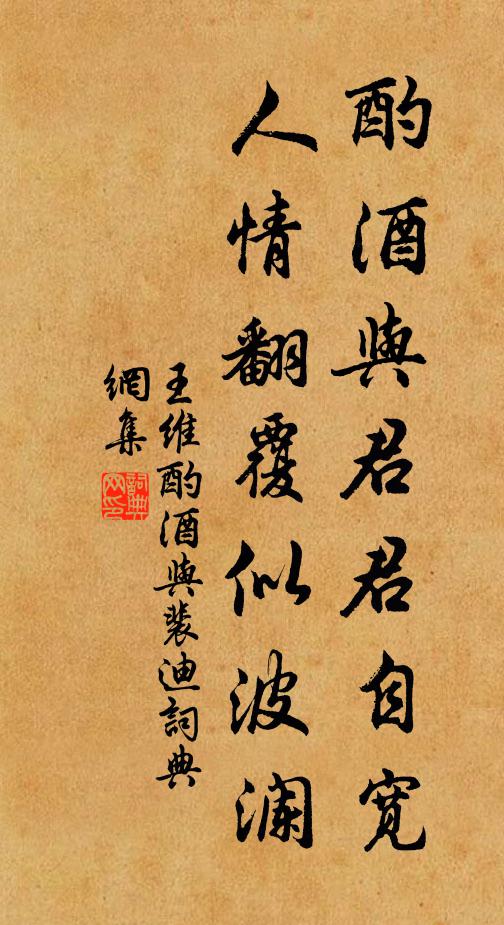 酌酒與君君自寬
人情翻覆似波澜
王維酌酒與裴迪詞典
網集
詞典
网印